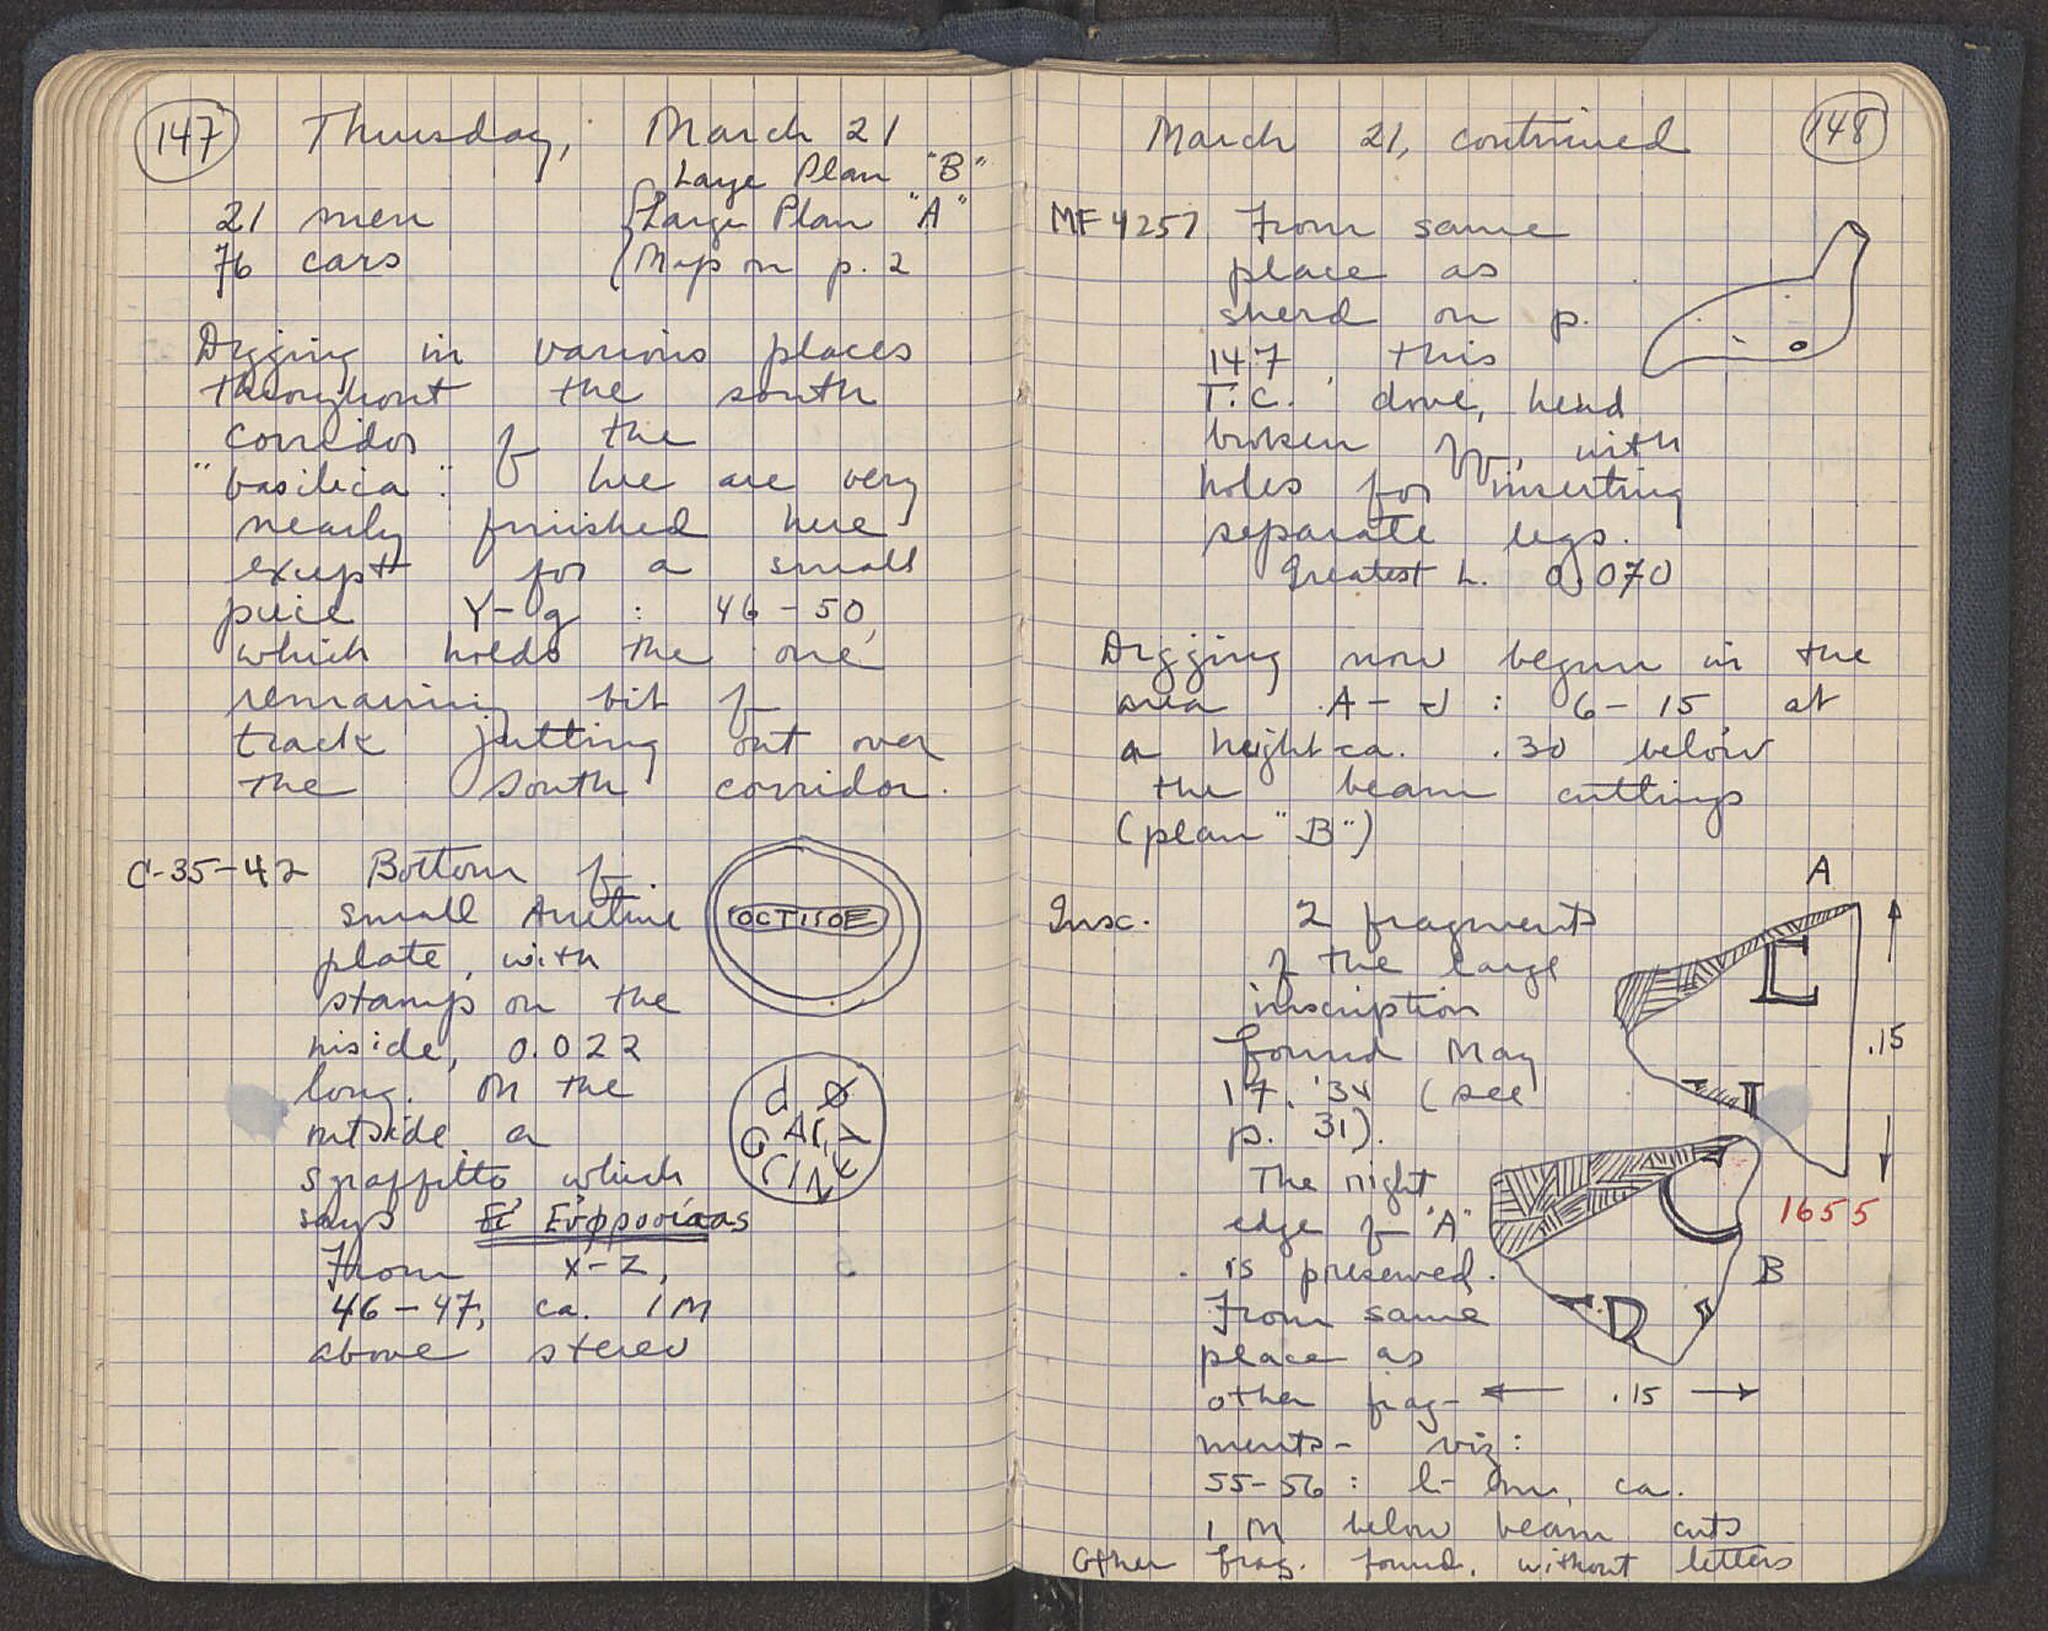 147 Thursday, March 21
Large Plan "B"
21 men Large Plan "A"
76 cars Map on p. 2
Digging in various places
throughout the south
corridor of the
"basilica". We are very
nearly finished here
except for a small
piece Y-g : 46-50,
which holds the one
remaining bit of
track jutting out over
the south corridor.
C-35-42 Bottom of
small Arretine
plate, with
stamp on the
inside, 0.022
long. On the
outside a
sgraffitto which
says
From X-Z,
46-47, ca. 1 M
above stereo
OCTIIOE
March 21, continued 148
MF 4257 From same
place as
sherd on p.
147, this
T.C. dove, head
broken off, with
holes for inserting
separate legs.
Greatest L. 0.070
Digging now begun in the
area A- : 6-15 at
a height ca. .30 below
the beam cuttings
(plan "B")
Insc. 2 fragments
of the large
inscription
found May
17, '34 (see
p. 31).
The right
edge of "A"
is preserved.
From same
place as
other frag-
ments- viz:
55-56 : l- ca.
1 M below beam cuts
Other frag. found, without letters
A
E
I
.15
1655
B
D
.15